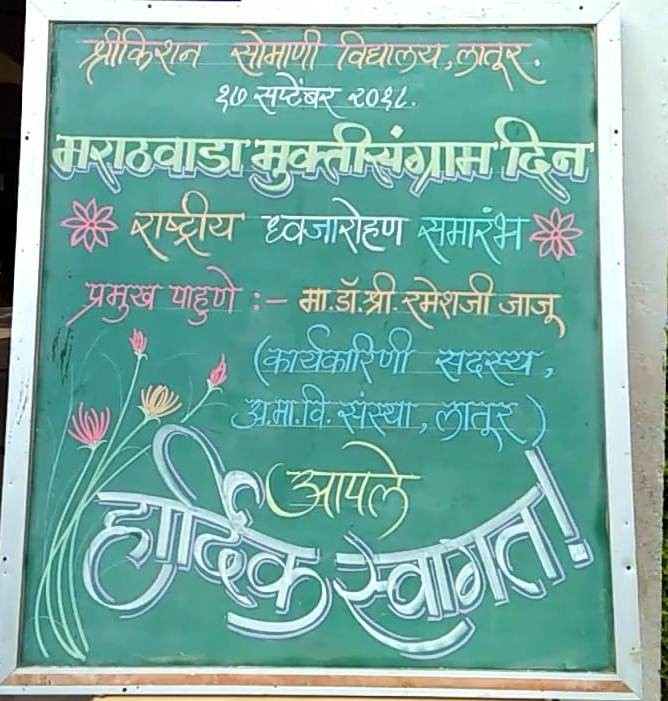 श्रीकिशन सोमाणी विद्यालय, लातूर.
१७ सप्टेंबर २०१८.
मराठवाडा मुक्तीसंग्राम दिन
राष्ट्रीय ध्वजारोहण समारंभ
प्रमुख पाहुणे :- मा.डॉ.श्री.रमेशजी जाजू
(कार्यकारिणी सदस्य,
अ.मा.वि.संस्था, लातूर)
आपले
हार्दिक स्वागत!